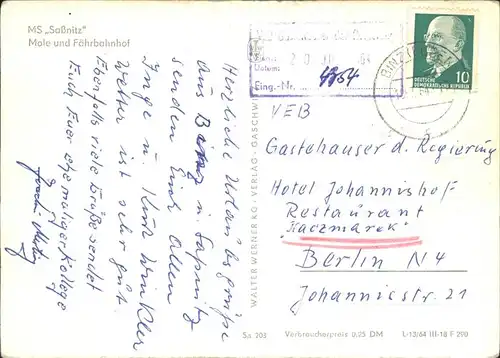 MS „Saßnitz"
Mole und Fährbahnhof
Herzliche Urlaubsgrüße
aus Binz u. Saßnitz
senden Euch Allen
Inge u. Kurt Winkler
Wetter ist sehr gut.
Ebenfalls viele Grüße sendet
Euch Euer ehemaliger Kollege
WALTER WERNER KG · VERLAG · GASCHWITZ
Datum:
20
64
Eing.-Nr.
4754
BINZ
DEUTSCHE
DEMOKRATISCHE REPUBLIK
10
VEB
Gästehäuser d. Regierung
Hotel Johannishof
Restaurant
"Kaczmarek"
Berlin N4
Johannisstr. 21
Sa 205
Verbraucherpreis 0,25 DM
L 13/64 III-18 F 290